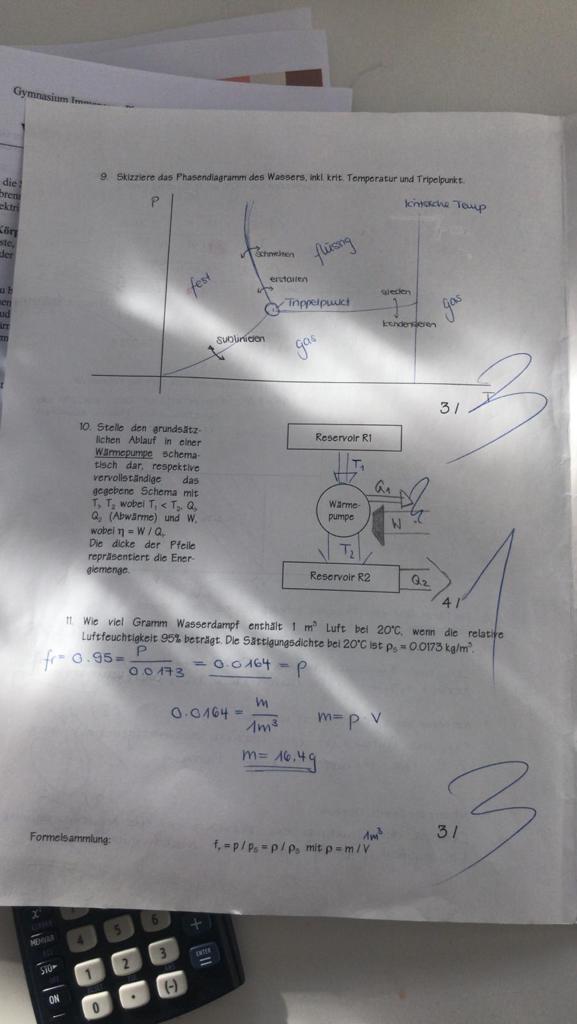 Gymnasium
die
9. Skizziere das Phasendiagramm des Wassers, inkl. krit. Temperatur und Tripelpunkt.
P
kritische Temp
schmelzen
flüssig
fest
erstarren
sieden
Trippelpunkt
gas
kondensieren
sublimieren
gas
T
3/ 3
10. Stelle den grundsätz-
lichen Ablauf in einer
Wärmepumpe schema-
tisch dar, respektive
vervollständige das
gegebene Schema mit
T₁, T₂ wobei T₁ < T₂, Q₁,
Q₂ (Abwärme) und W,
wobei η = W / Q₁.
Die dicke der Pfeile
repräsentiert die Ener-
giemenge.
Reservoir R1
T₁
Q₁
Wärme-
pumpe
W
T₂
Reservoir R2
Q₂
4/ 1
11. Wie viel Gramm Wasserdampf enthält 1 m³ Luft bei 20°C, wenn die relative
Luftfeuchtigkeit 95% beträgt. Die Sättigungsdichte bei 20°C ist ρₛ = 0.0173 kg/m³.
fr = 0.95 = P / 0.0173 = 0.0164 = ρ
0.0164 = m / 1m³ m = ρ · V
m = 16.4g
1m³
3/ 3
Formelsammlung:
fᵣ = p / pₛ = ρ / ρₛ mit ρ = m / V
MEMVAR
STO▸
ON
4
5
6
+
1
2
3
ENTER
=
0
.
(-)